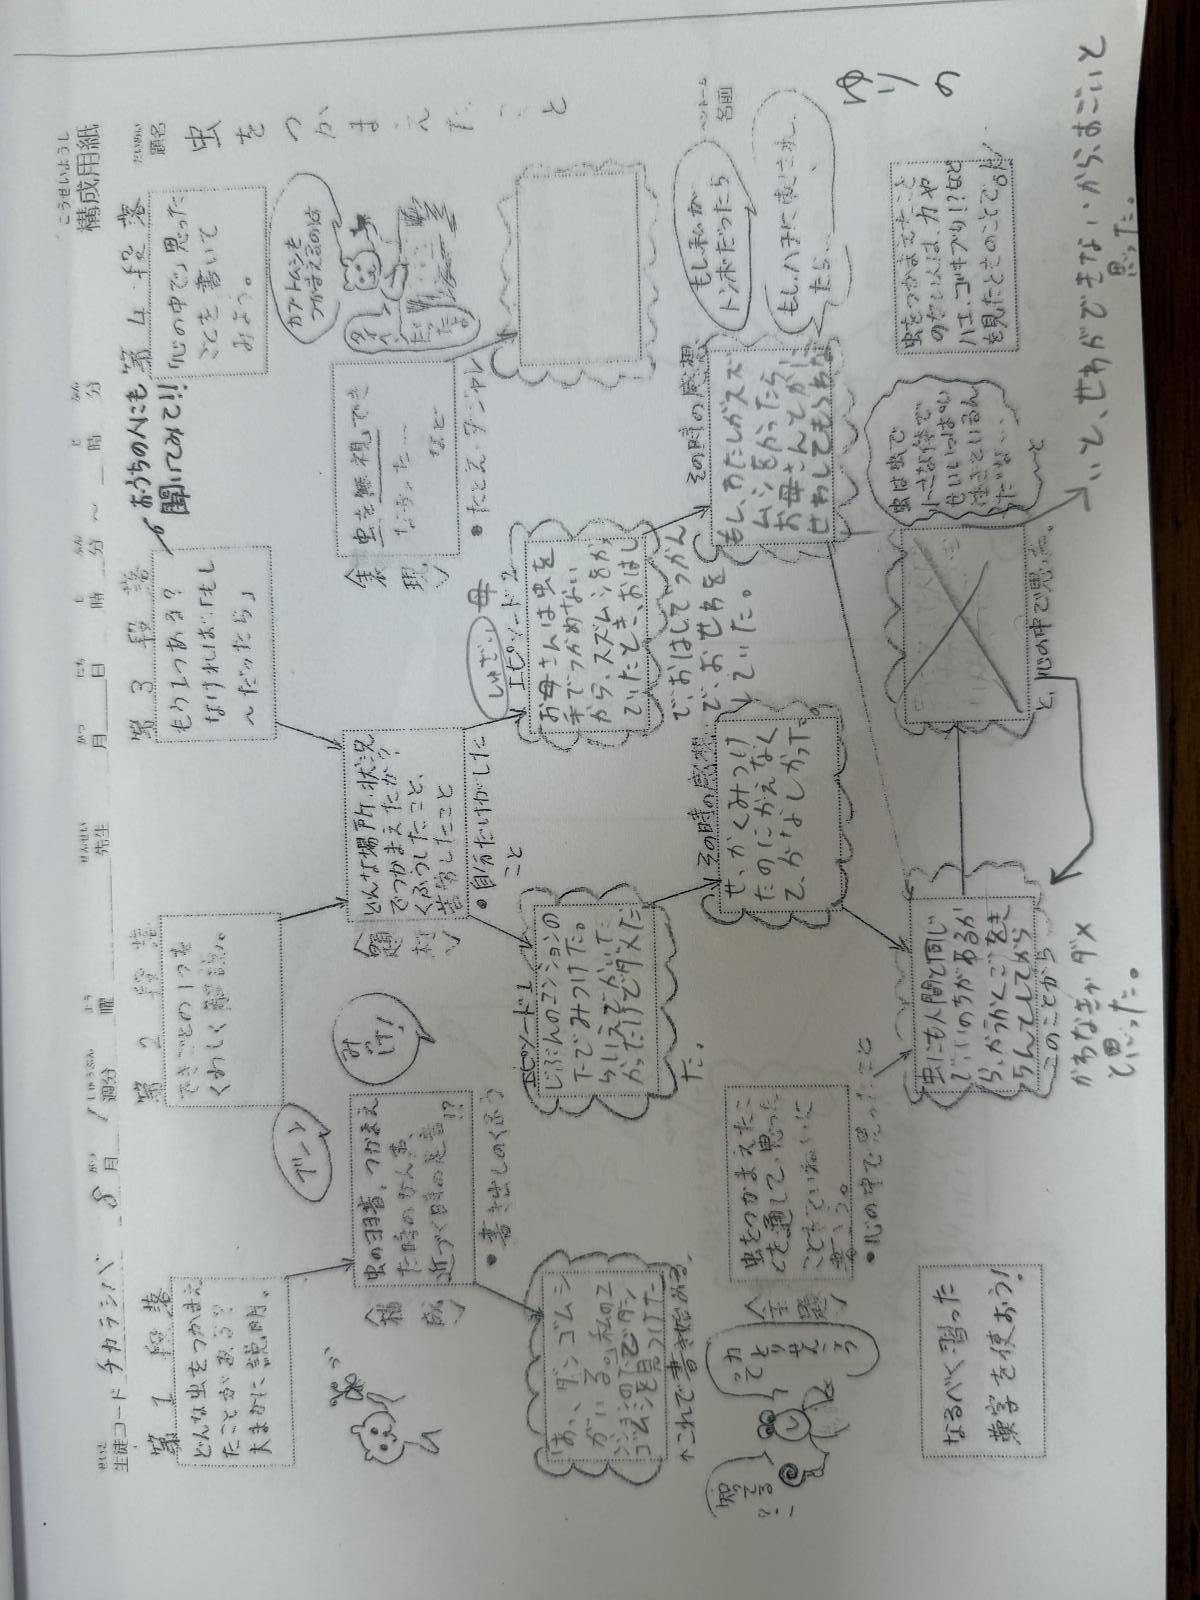 こうせいようし
構成用紙
だいめい
題名
虫をつかまえたこと
ペンネーム
名前
ゆりの
せいと
生徒コード チカラシバ
8月
1週分
よう
曜
せんせい
先生
がつ
月
にち
日
じ
時
ふん
分
～
じ
時
ふん
分
第1段落
どんな虫をつかまえ
たことがある？
大まかに説明。
〈構成〉
虫の羽音、つかまえ
た時のひん末、
近づく時の足音!?
●書き出しのくふう
「あっ、ダンゴムシ
がいる。」私のマ
ンションの下でダン
ゴムシを見つけた
↑これで書き始める。
第2段落
できごとの1つを
くわしく解説。
〈題材〉
どんな場所・状況
でつかまえたか？
くふうしたこと、
苦労したこと
●自分だけがした
こと
エピソード1
じぶんのマンションの
下でみつけた。
らいえでかいた
かったけでダメだ
た。
その時の感想
せっかくみつけ
たのにかえなく
て、かなしかった。
第3段落
もう1つある？
なければ「もし
～だったら」
おうちの人にも
聞いてみて!!
〈表現〉
虫を無視でき
なかった…
など
●たとえ・ダジャレ
しゅざい
母
エピソード2
お母さんは虫を
手でつかめない
から、スズムシをか
っていたとき、おはし
でつかん
で、おせわを
していた。
その時の感想
もし、わたしがスズ
ムシをかったら、
お母さんとがし
せわしてもらわな
もし私が
トンボだったら
もし、ハチに
たら…
第4段落
「心の中で」思った
ことを書いて
みよう。
カブトムシを
つかまえるのは
〈主題〉
虫をつかまえたこ
とを通して、思った
ことをていねいに
書こう。
●心の中で思ったこと
虫にも人間と同じ
でいのちがあるか
ら、かうかくごをき
ちんとしてから
かわなきゃダメ
と思った。
このことから
虫は虫で
小さな体で
せいいっぱい
生きているん
だな…
と
と、心の中で思った。
いと、せわができないから、すごいと
思った。
虫をつかまえたこと
のない人は、力や
ハエ、ゴキブリ!?など
を見たときのことで。
なるべく習った
漢字を使おう！